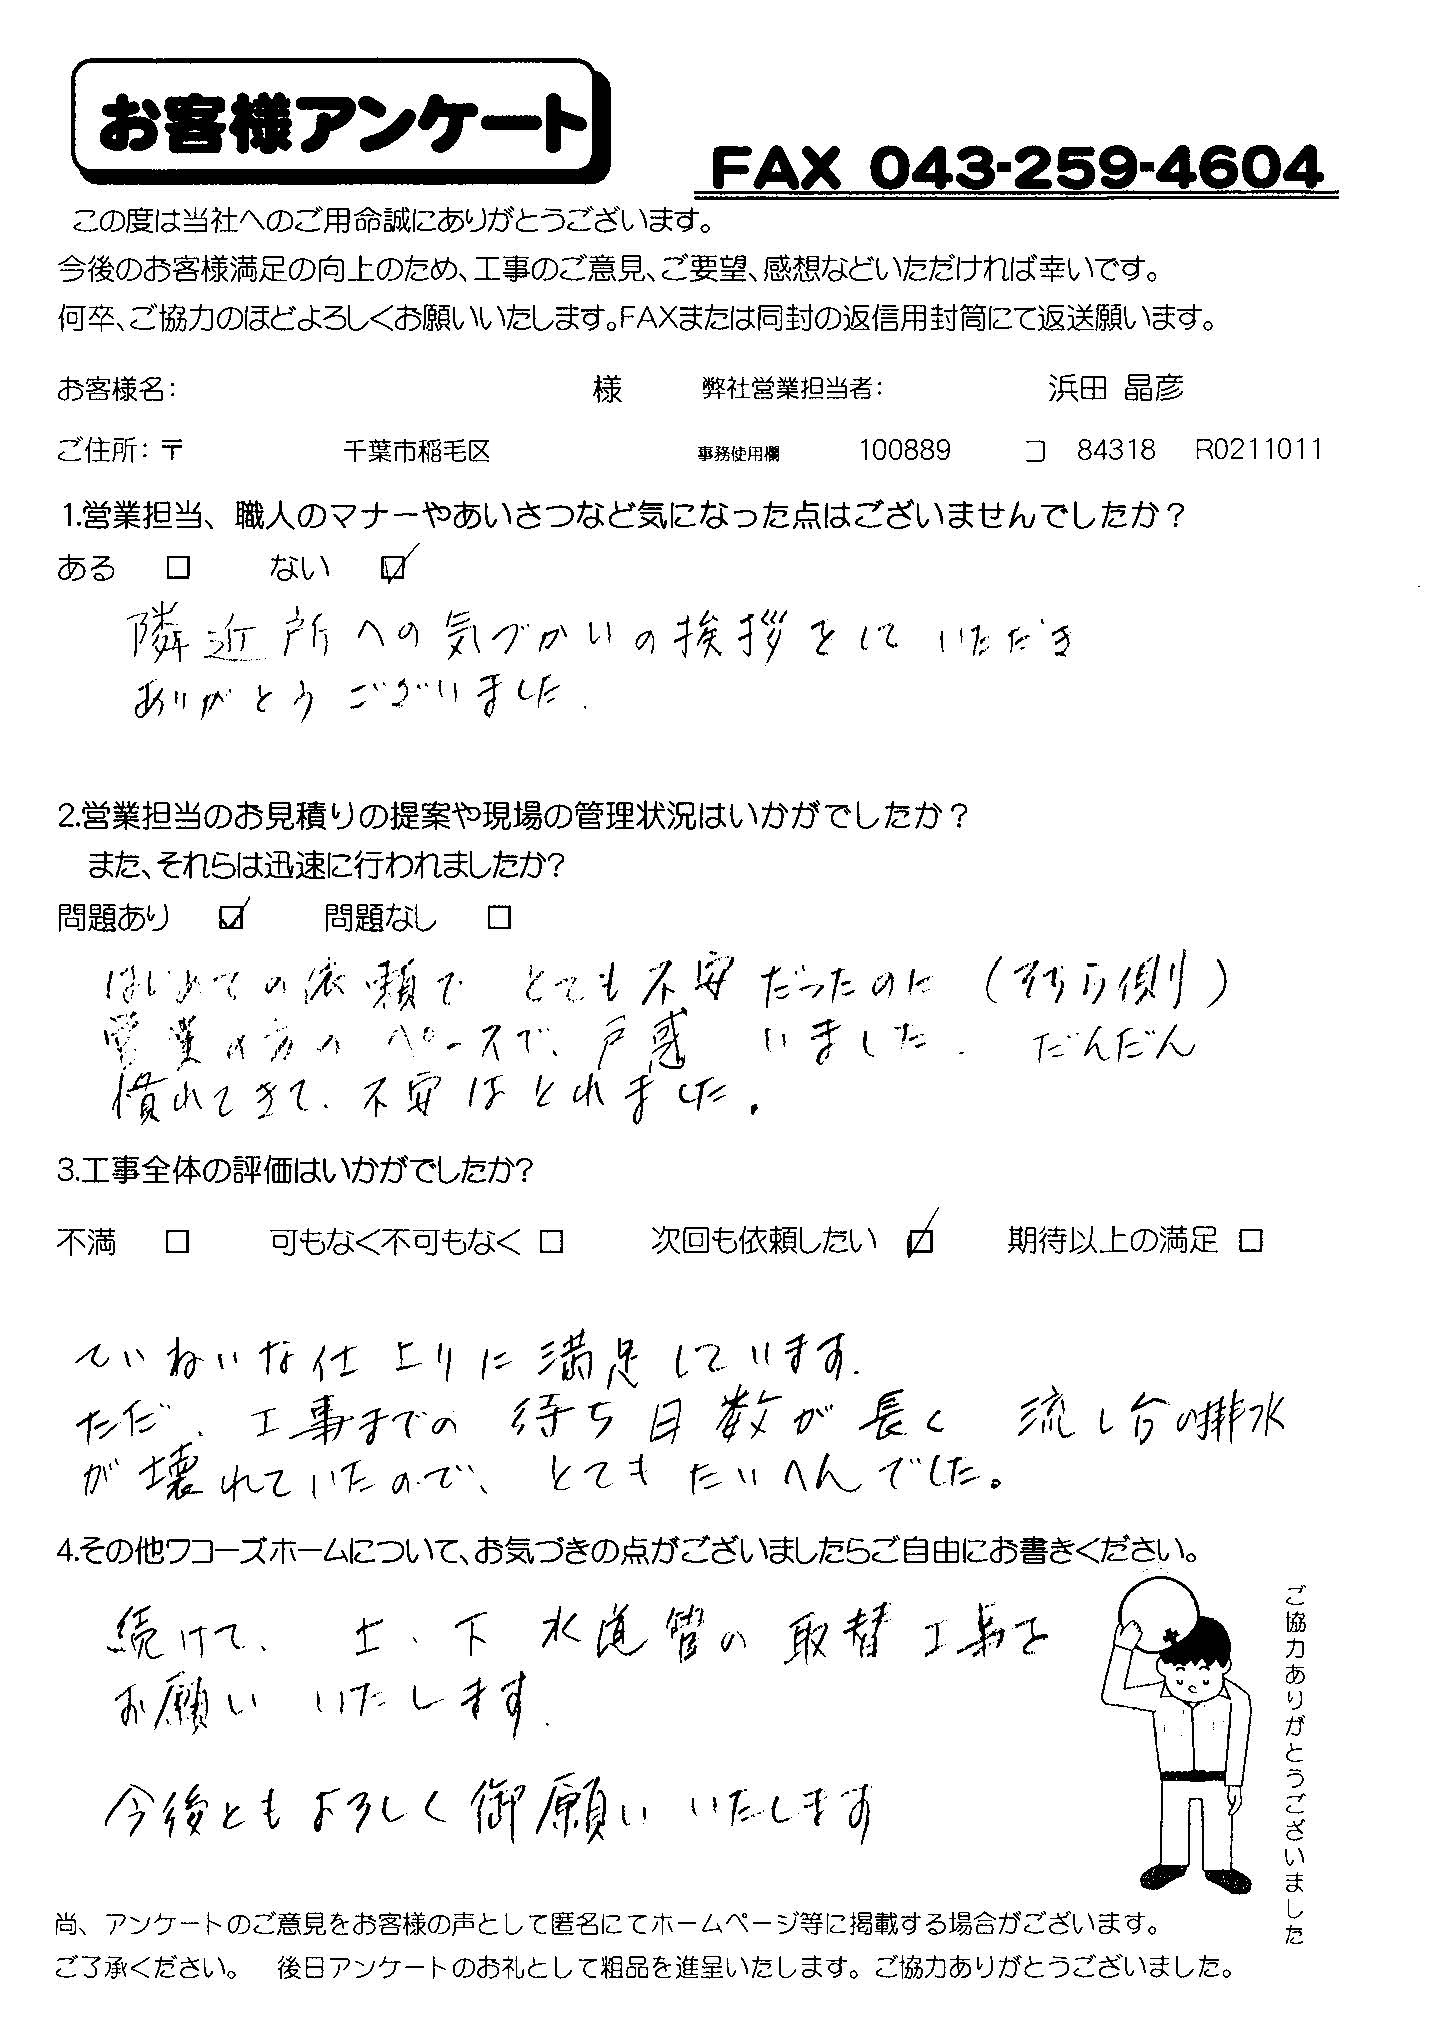 お客様アンケート
FAX 043-259-4604
この度は当社へのご用命誠にありがとうございます。
今後のお客様満足の向上のため、工事のご意見、ご要望、感想などいただければ幸いです。
何卒、ご協力のほどよろしくお願いいたします。FAXまたは同封の返信用封筒にて返送願います。
お客様名： 様 弊社営業担当者： 浜田 晶彦
ご住所：〒 千葉市稲毛区 事務使用欄 100889 コ 84318 R0211011
1.営業担当、職人のマナーやあいさつなど気になった点はございませんでしたか？
ある □ ない ☑
隣近所への気づかいの挨拶をして いただき
ありがとう ございました.
2.営業担当のお見積りの提案や現場の管理状況はいかがでしたか？
また、それらは迅速に行われましたか？
問題あり ☑ 問題なし □
はじめての依頼で とても不安だったのに（そちら側）
営業の方の ペースで、戸惑 いました. だんだん
慣れてきて、不安はとれました。
3.工事全体の評価はいかがでしたか？
不満 □ 可もなく不可もなく □ 次回も依頼したい ☑ 期待以上の満足 □
ていねいな仕上りに満足しています.
ただ、工事までの 待ち日数が長く 流し台の排水
が壊れていたので、とても たいへんでした。
4.その他ワコーズホームについて、お気づきの点がございましたらご自由にお書きください。
続けて、 上、下 水道管の 取替工事を
お願い いたします.
今後ともよろしく御願い いたします
ご協力ありがとうございました
尚、アンケートのご意見をお客様の声として匿名にてホームページ等に掲載する場合がございます。
ご了承ください。 後日アンケートのお礼として粗品を進呈いたします。ご協力ありがとうございました。